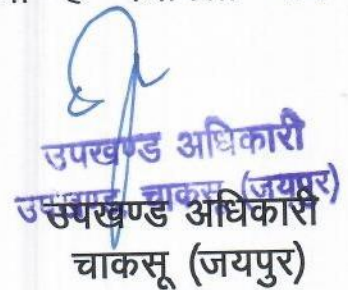 उपखण्ड अधिकारी
उपखण्ड चाकसू (जयपुर)
उपखण्ड अधिकारी
चाकसू (जयपुर)